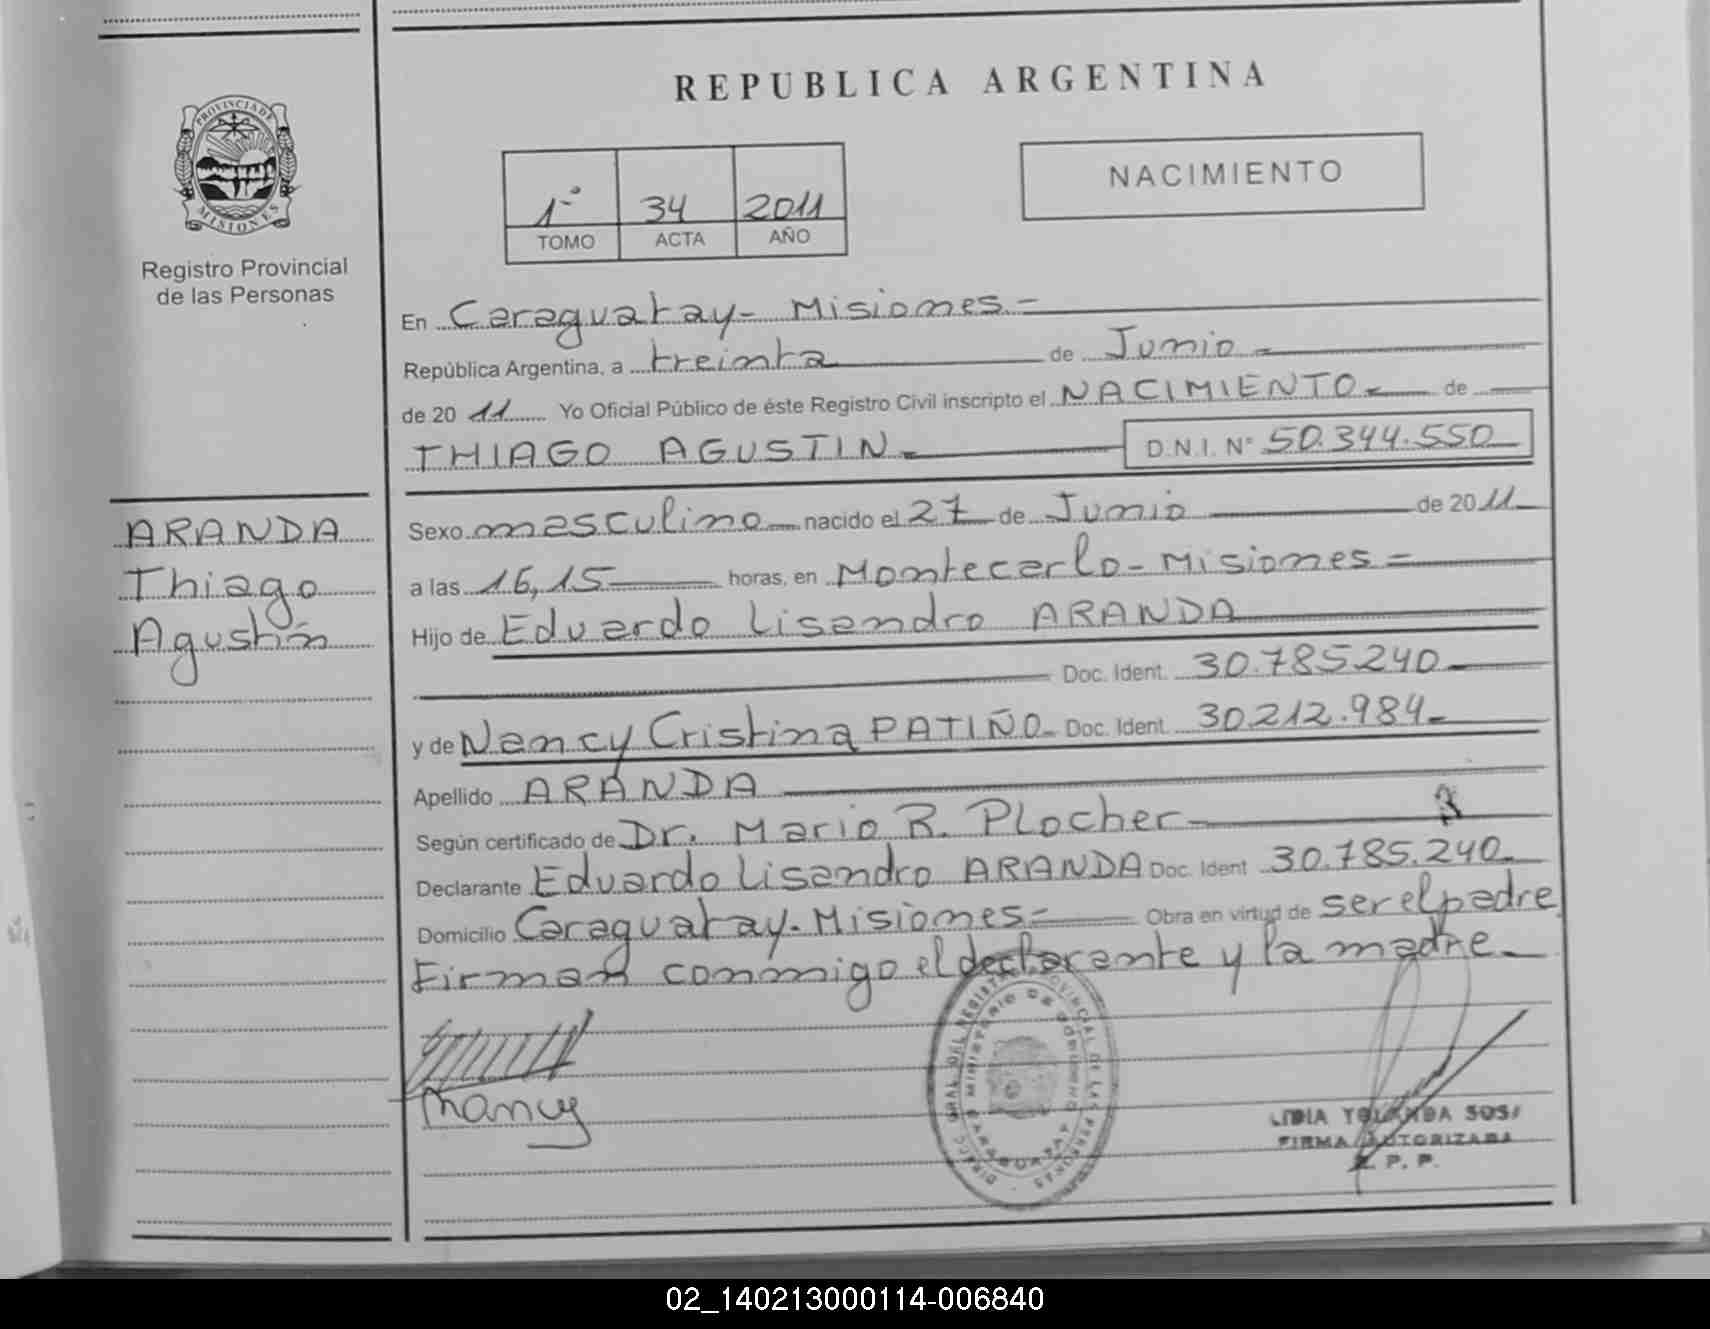 REPUBLICA ARGENTINA
PROVINCIA DE MISIONES
Registro Provincial
de las Personas
1º 34 2011
TOMO ACTA AÑO
NACIMIENTO
En Caraguatay - Misiones =
República Argentina, a treinta de Junio
de 20 11 Yo Oficial Público de éste Registro Civil inscripto el NACIMIENTO de
THIAGO AGUSTIN D.N.I. Nº 50.344.550
ARANDA
Thiago
Agustín
Sexo masculino nacido el 27 de Junio de 2011
a las 16,15 horas, en Montecarlo - Misiones =
Hijo de Eduardo Lisandro ARANDA
Doc. Ident. 30.785.240
y de Nancy Cristina PATIÑO Doc. Ident. 30.212.984
Apellido ARANDA
Según certificado de Dr. Mario R. Plocher
Declarante Eduardo Lisandro ARANDA Doc. Ident 30.785.240
Domicilio Caraguatay - Misiones = Obra en virtud de ser el padre
Firman conmigo el declarante y la madre
nancy
DIRECC. GRAL. DEL REGISTRO PROVINCIAL DE LAS PERSONAS
MINISTERIO DE GOBIERNO
LIDIA YOLANDA SOSA
FIRMA AUTORIZADA
R. P. P.
02_140213000114-006840